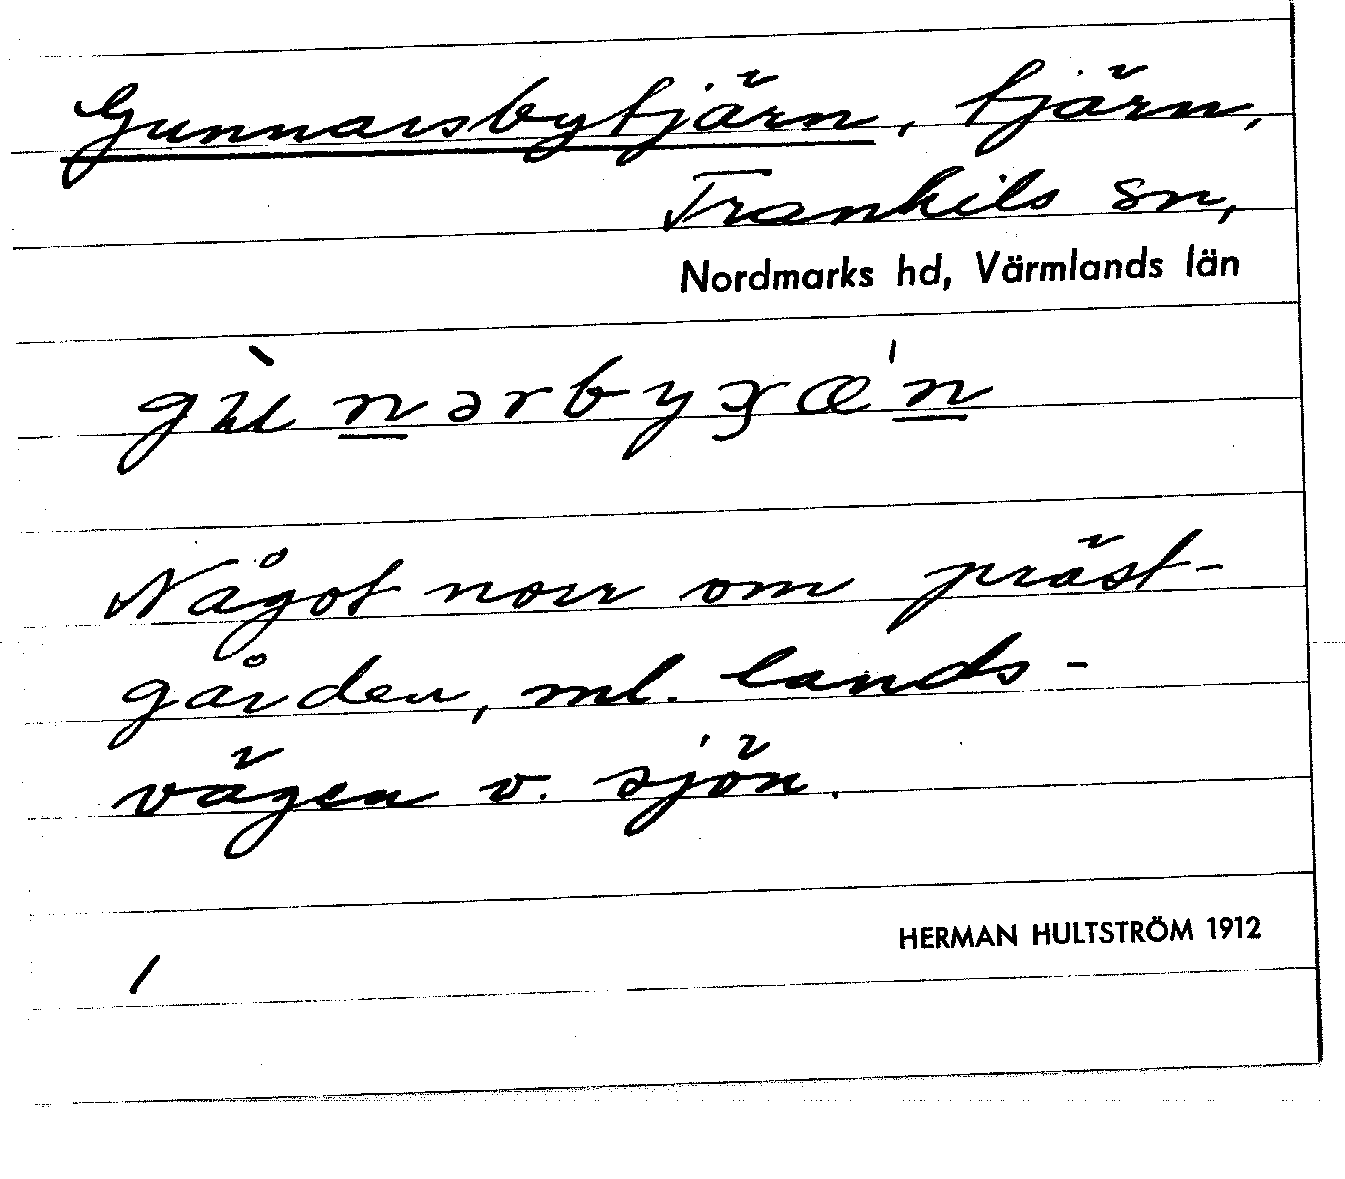 Gunnarsbytjärn, tjärn,
Trankils sn,
Nordmarks hd, Värmlands län
Något norr om präst-
gården, ml. lands-
vägen o. sjön.
HERMAN HULTSTRÖM 1912
/